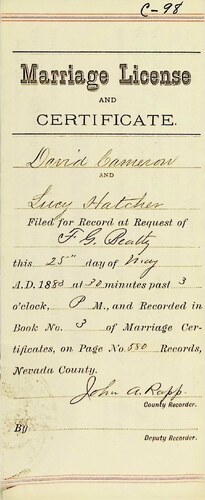 C-98
Marriage License
AND
CERTIFICATE.
David Cameron
AND
Lucy Hatcher
Filed for Record at Request of
F. G. Beatty
this 25" day of May
A.D. 1883 at 30 minutes past 3
o'clock, P M., and Recorded in
Book No. 3 of Marriage Cer-
tificates, on Page No. 580 Records,
Nevada County.
John A. Rapp.
County Recorder.
By
Deputy Recorder.